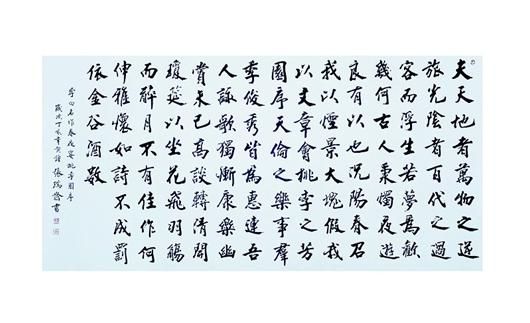 夫天地者萬物之逆
旅光陰者百代之過
客而浮生若夢為歡
幾何古人秉燭夜遊
良有以也況陽春召
我以煙景大塊假我
以文章會桃李之芳
園序天倫之樂事群
季俊秀皆為惠連吾
人詠歌獨慚康樂幽
賞未已高談轉清開
瓊筵以坐花飛羽觴
而醉月不有佳作何
伸雅懷如詩不成罰
依金谷酒數
李白名作春夜宴桃李園序
歲次丁亥年 張瑞 書